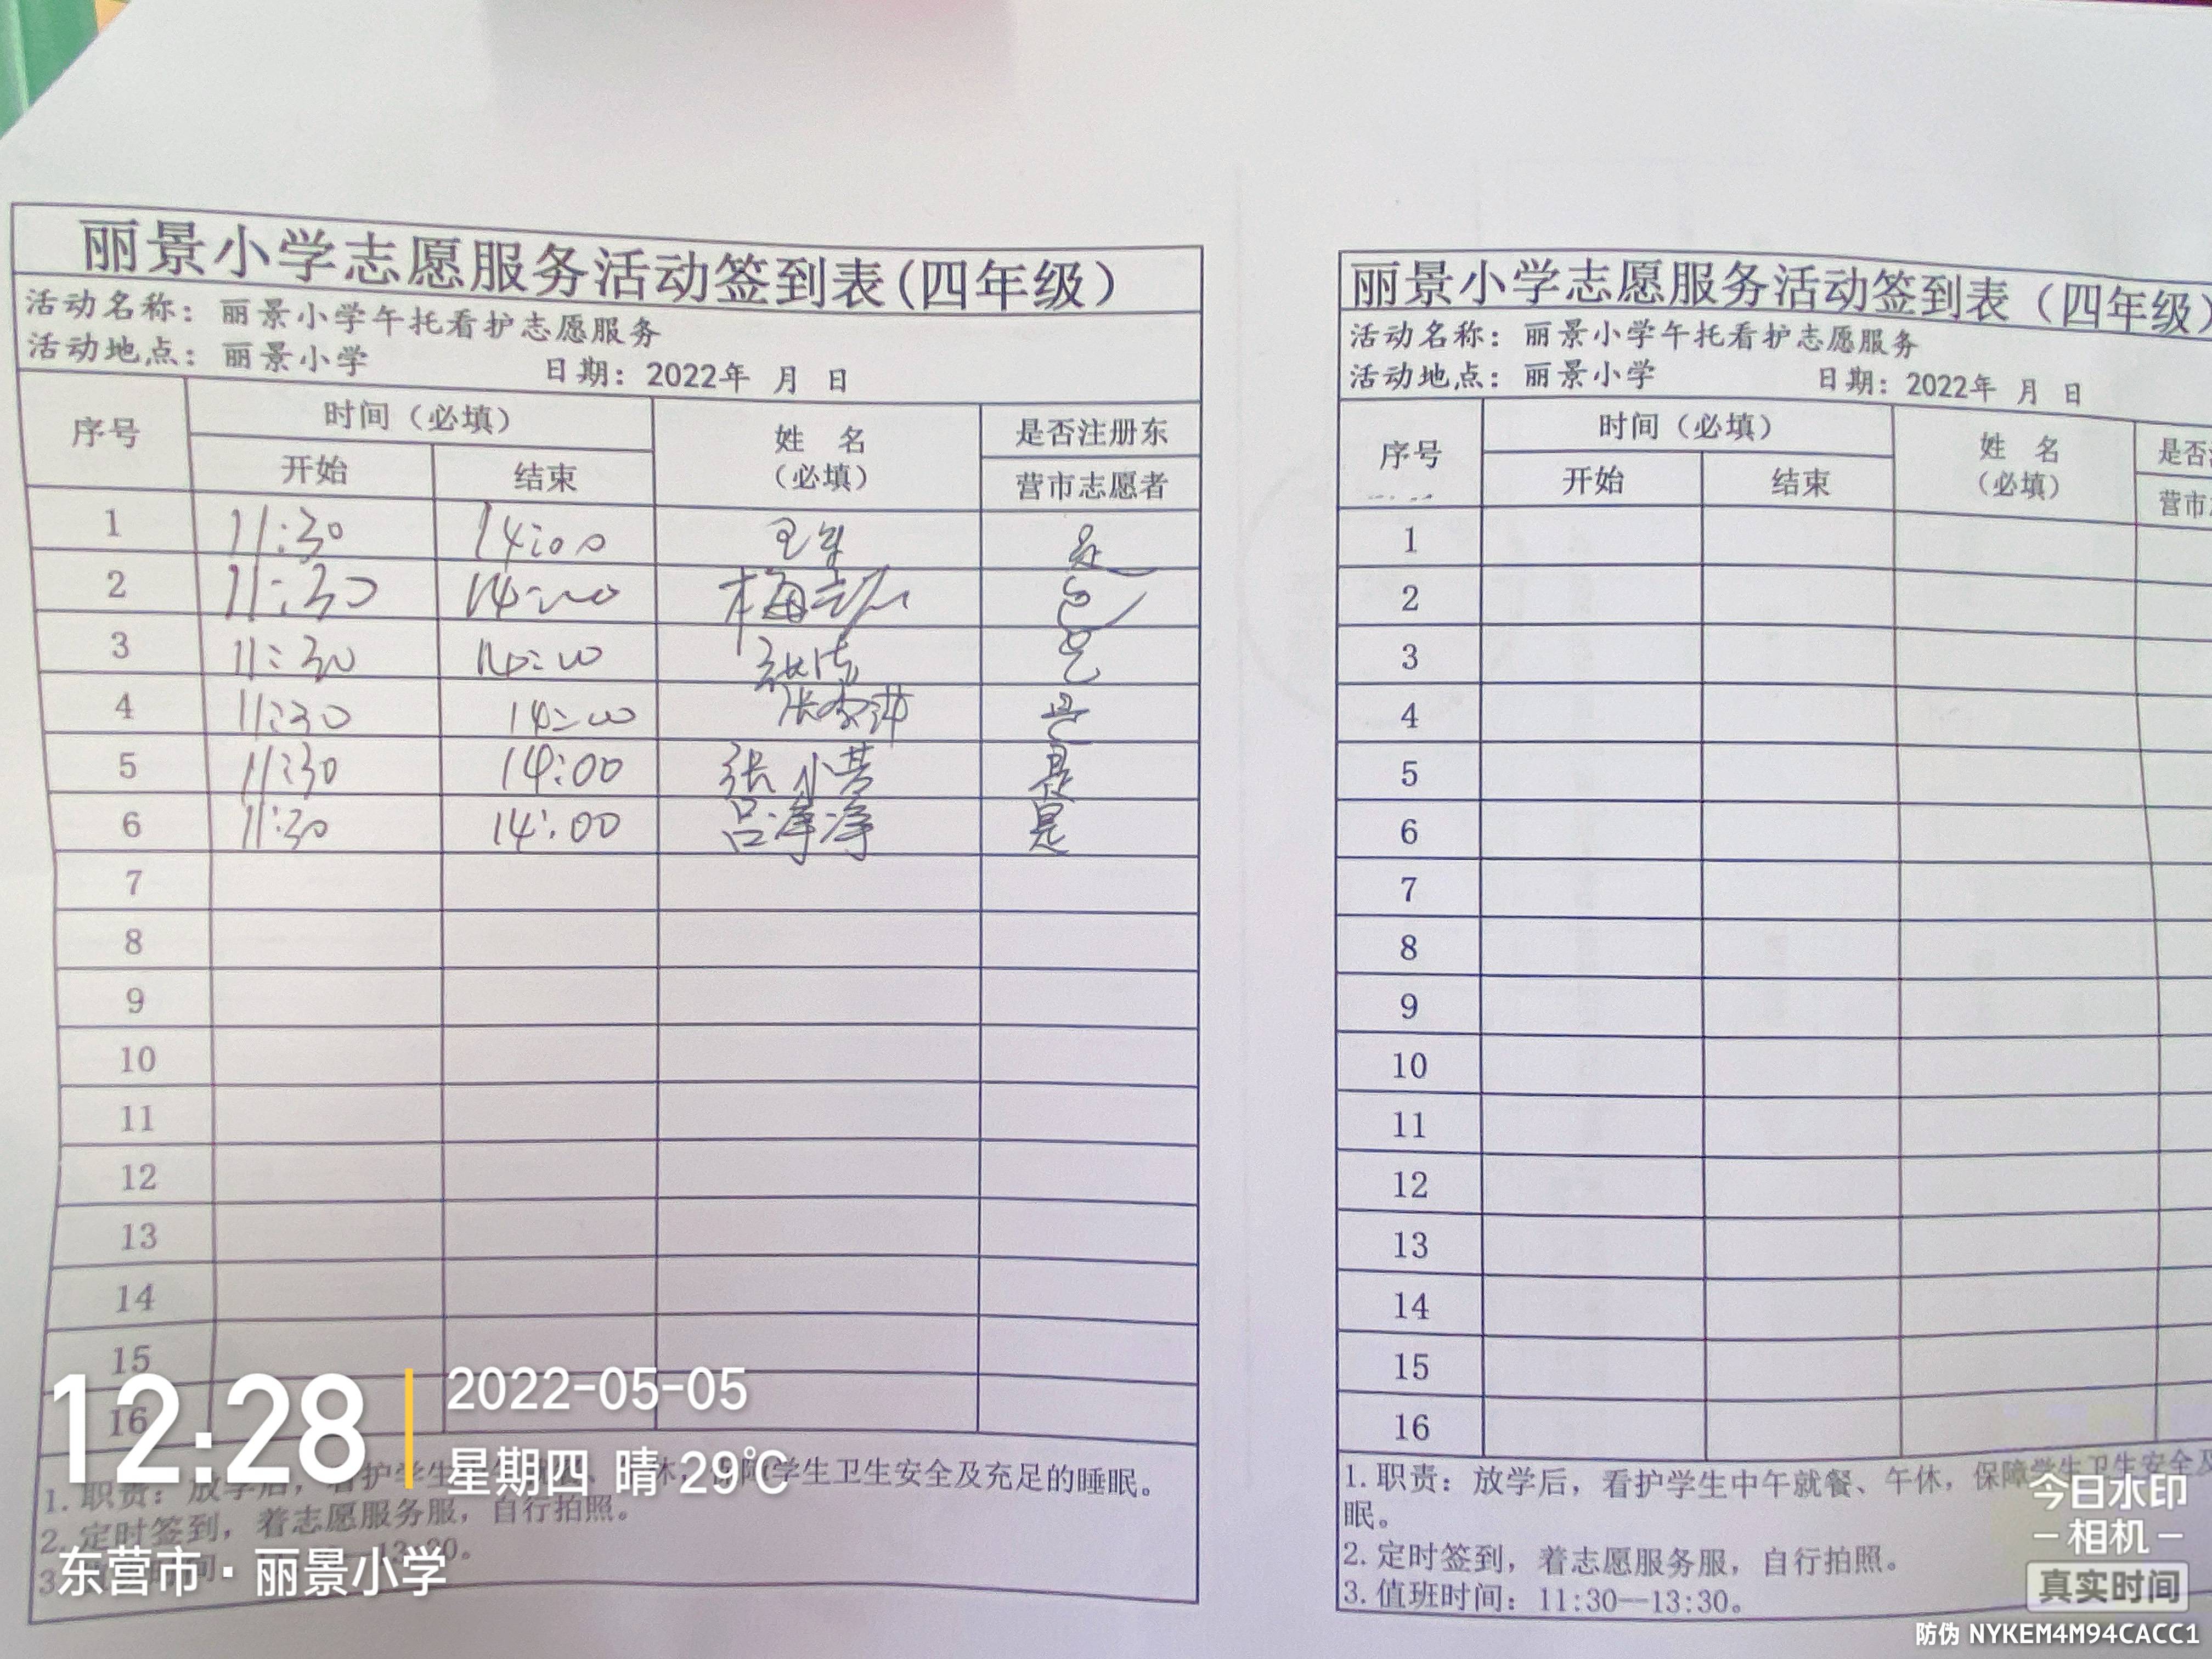 丽景小学志愿服务活动签到表(四年级)
活动名称：丽景小学午托看护志愿服务
活动地点：丽景小学 日期：2022年 月 日
序号 时间（必填） 姓 名（必填） 是否注册东营市志愿者
开始 结束
1 11:30 14:00 是
2 11:30 14:00 是
3 11:30 14:00 是
4 11:30 14:00 是
5 11:30 14:00 张小营 是
6 11:30 14:00 吕净净 是
7
8
9
10
11
12
13
14
15
16
1.职责：放学后，看护学生 休，保障学生卫生安全及充足的睡眠。
2.定时签到，着志愿服务服，自行拍照。
3.
丽景小学志愿服务活动签到表（四年级）
活动名称：丽景小学午托看护志愿服务
活动地点：丽景小学 日期：2022年 月 日
序号 时间（必填） 姓 名（必填） 是否
开始 结束 营市
1
2
3
4
5
6
7
8
9
10
11
12
13
14
15
16
1.职责：放学后，看护学生中午就餐、午休，保障学生卫生安全及
眠。
2.定时签到，着志愿服务服，自行拍照。
3.值班时间：11:30—13:30。
12:28
2022-05-05
星期四 晴 29℃
东营市·丽景小学
今日水印
相机
真实时间
防伪 NYKEM4M94CACC1